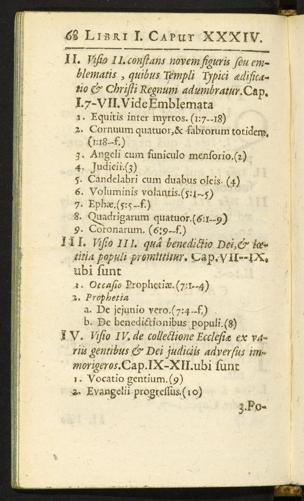 68 LIBRI I. CAPUT XXXIV.
II. Visio II. constans novem figuris seu em-
blematis, quibus Templi Typici ædifica-
tio & Christi Regnum adumbratur. Cap.
I.7-VII. Vide Emblemata
1. Equitis inter myrtos. (1:7--18)
2. Cornuum quatuor, & fabrorum totidem.
(1:18--f.)
3. Angeli cum funiculo mensorio. (2)
4. Judicii. (3)
5. Candelabri cum duabus oleis. (4)
6. Voluminis volantis. (5:1-5)
7. Ephæ. (5:5-f.)
8. Quadrigarum quatuor. (6:1--9)
9. Coronarum. (6:9--f.)
III. Visio III. quâ benedictio Dei, & læ-
titia populi promittitur. Cap. VII--IX.
ubi sunt
1. Occasio Prophetiæ. (7:1--4)
2. Prophetia
a. De jejunio vero. (7:4--f.)
b. De benedictionibus populi. (8)
IV. Visio IV. de collectione Ecclesiæ ex va-
riis gentibus & Dei judiciis adversus im-
morigeros. Cap. IX-XII. ubi sunt
1. Vocatio gentium. (9)
2. Evangelii progressus. (10)
3. Po-